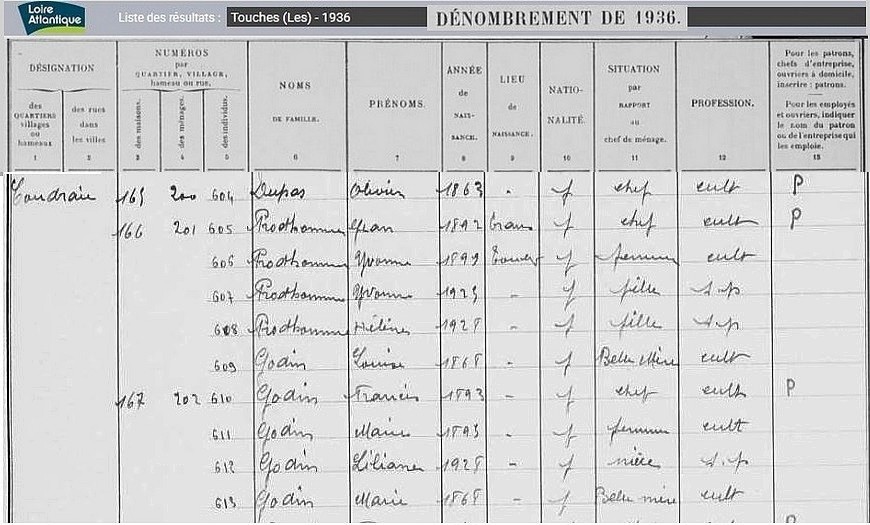 Loire
Atlantique
Liste des résultats : Touches (Les) - 1936
DÉNOMBREMENT DE 1936.
DÉSIGNATION
des QUARTIERS villages ou hameaux
1
des rues dans les villes
2
NUMÉROS
par
QUARTIER, VILLAGE,
hameau ou rue.
des maisons.
3
des ménages.
4
des individus.
5
NOMS
DE FAMILLE.
6
PRÉNOMS.
7
ANNÉE
de
NAIS-
SANCE.
8
LIEU
de
NAISSANCE.
9
NATIO-
NALITÉ.
10
SITUATION
par
RAPPORT
au
chef de ménage.
11
PROFESSION.
12
Pour les patrons,
chefs d'entreprise,
ouvriers à domicile,
inscrire : patrons.
Pour les employés
et ouvriers, indiquer
le nom du patron
ou de l'entreprise qui
les emploie.
13
165 200 604 Dupas Olivier 1863 - f chef cult P
166 201 605 Prodhomme Jean 1892 Trans f chef cult P
606 Prodhomme Yvonne 1899 f femme cult
607 Prodhomme Yvonne 1925 - f fille s.p
608 Prodhomme Hélène 1928 - f fille s.p
609 Godin Louise 1868 - f Belle Mère cult
167 202 610 Godin Francis 1893 - f chef cult P
611 Godin Marie 1893 - f femme cult
612 Godin Liliane 1928 - f nièce s.p
613 Godin Marie 1868 - f Belle mère cult